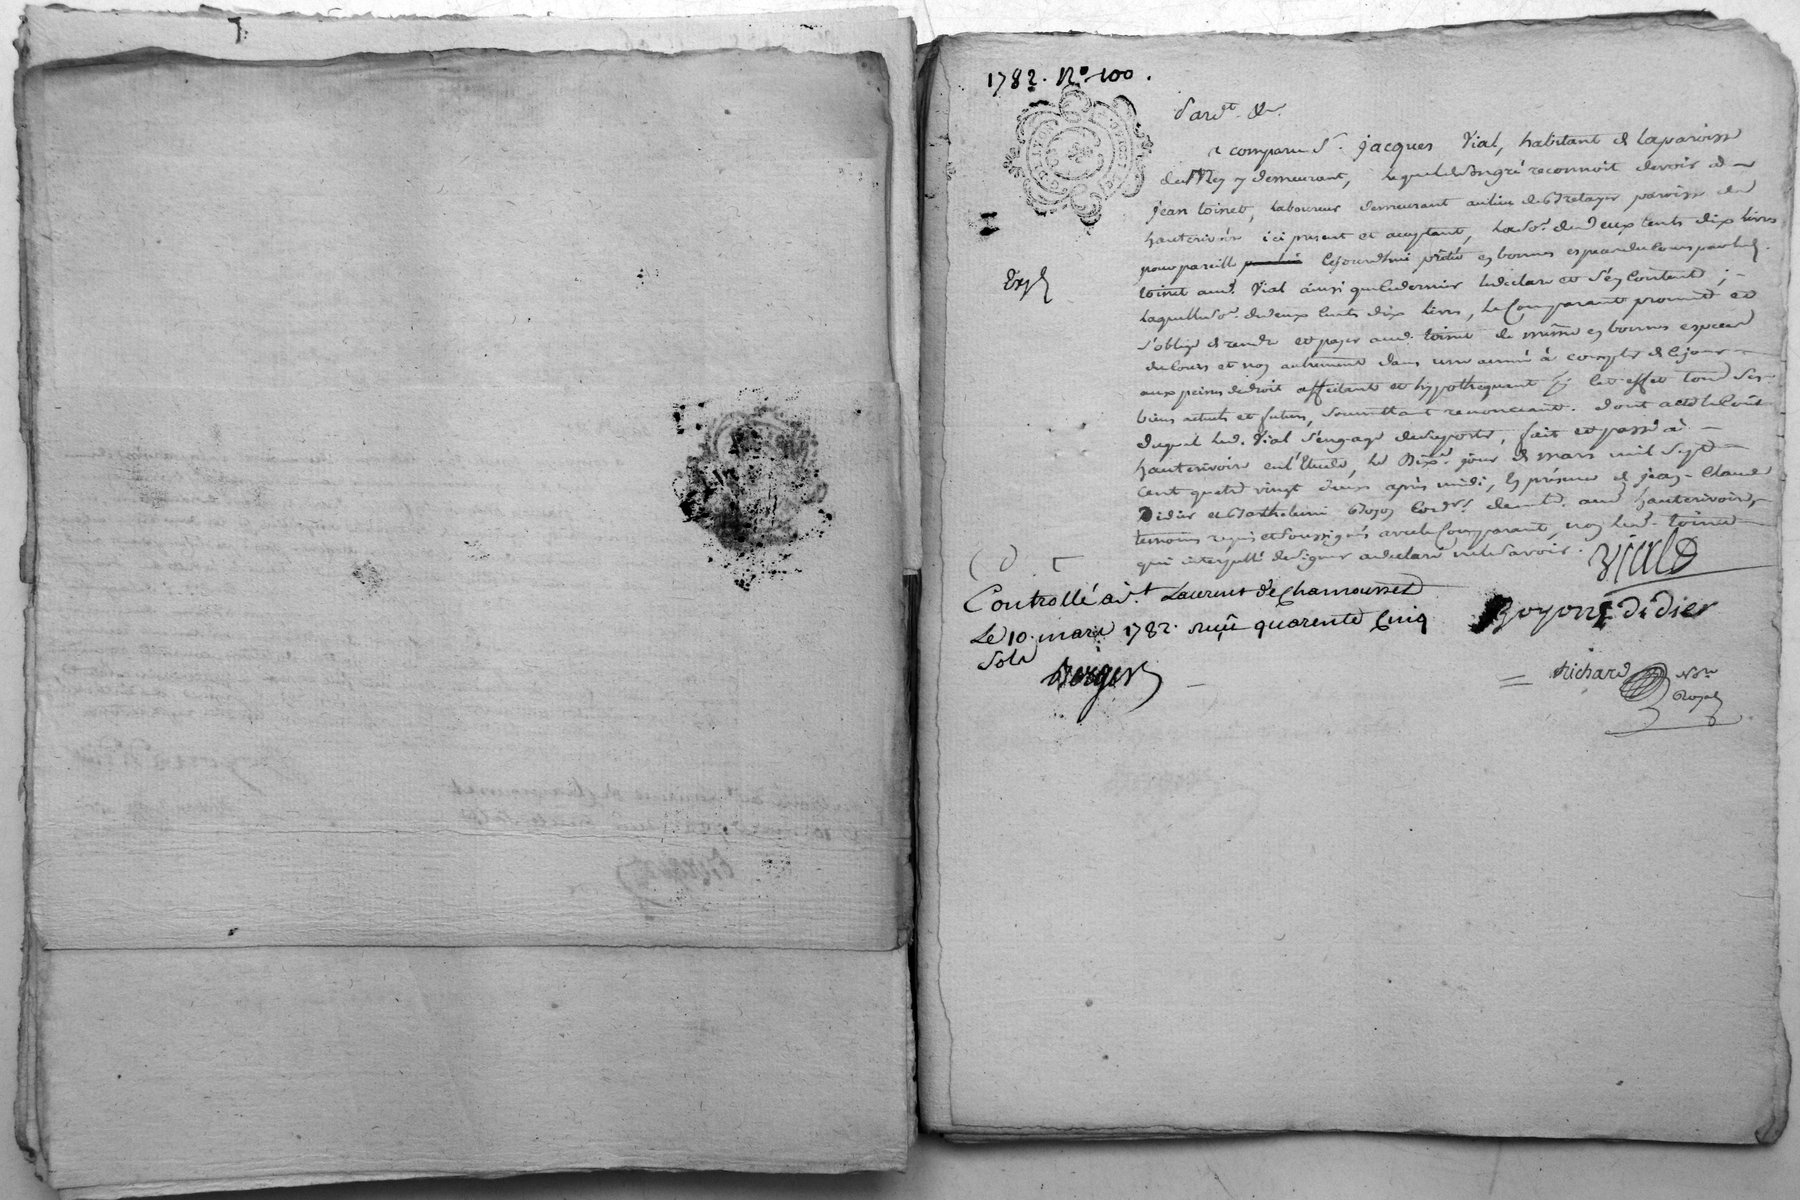 1782. N.º 100.
Pard.t &a.
a comparu S.r jacques Vial, habitant de la paroisse
de Mey y demeurant, lequel de son gré reconnoit devoir a
jean toinet, laboureur demeurant au lieu de Bretager paroisse de
hauterivoire ici present et aceptant, la so.e de deux cents dix livres
pour pareille cejourdhui pretée en bonnes especes du cours par led.
toinet aud. Vial ainsi que ce dernier le declare et s'en Contente ;
laquelle so.e de deux cents dix livres, le Comparant promet et
s'oblige de rendre et payer aud. toinet de même en bonnes especes
du cours et non autrement dans une année à compter de ce jour
aux peines de droit affectant et hypothequant à cet effet tous ses
biens actuels et futurs, soumettant renonciant. dont acte le Coût
duquel led. Vial s'engage de suporter, fait et passé à
hauterivoire en l'Etude, le Dix.e jour de mars mil sept
cent quatre vingt deux après midi, En présence de jean-Claude
Didier et Barthelemi Boyon Cord.rs dem.t aud. hauterivoire,
temoins requis et soussignés avec le Comparant, non led. toinet
qui interpellé de signer a declaré ne le savoir.
Exp.é
Vial
Boyon Didier
Controllé a S.t Laurent de Chamousset
Le 10. mars 1782. reçu quarente Cinq
Sols
Berger
Richard No.re
Royal